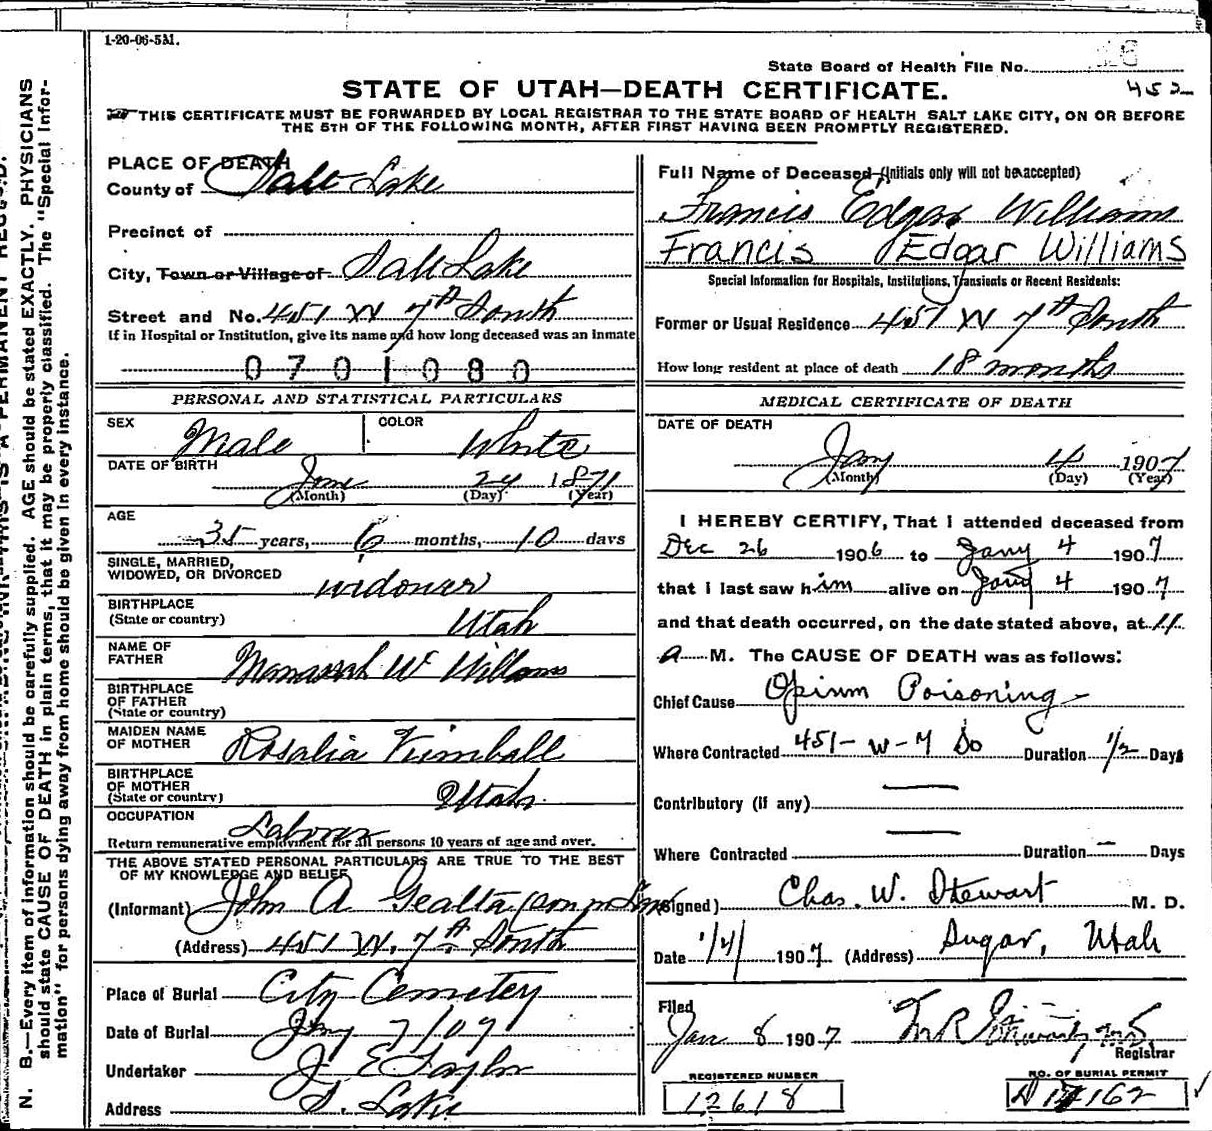 1-20-06-5M.
State Board of Health File No.
452
STATE OF UTAH—DEATH CERTIFICATE.
THIS CERTIFICATE MUST BE FORWARDED BY LOCAL REGISTRAR TO THE STATE BOARD OF HEALTH SALT LAKE CITY, ON OR BEFORE
THE 5TH OF THE FOLLOWING MONTH, AFTER FIRST HAVING BEEN PROMPTLY REGISTERED.
PLACE OF DEATH
County of Salt Lake
Precinct of
City, Town or Village of Salt Lake
Street and No. 451 W 7th South
If in Hospital or Institution, give its name and how long deceased was an Inmate
0701080
PERSONAL AND STATISTICAL PARTICULARS
SEX Male COLOR White
DATE OF BIRTH June 24 1871
(Month) (Day) (Year)
AGE
35 years, 6 months, 10 days
SINGLE, MARRIED,
WIDOWED, OR DIVORCED widower
BIRTHPLACE
(State or country) Utah
NAME OF
FATHER Manassah W Williams
BIRTHPLACE
OF FATHER
(State or country)
MAIDEN NAME
OF MOTHER Rosalia Kimball
BIRTHPLACE
OF MOTHER
(State or country) Utah
OCCUPATION Laborer
Return remunerative employment for all persons 10 years of age and over.
THE ABOVE STATED PERSONAL PARTICULARS ARE TRUE TO THE BEST
OF MY KNOWLEDGE AND BELIEF
(Informant) John A
(Address) 451 W. 7th South
Place of Burial City Cemetery
Date of Burial Jany 7/07
Undertaker J E Taylor
Address S. Lake
Full Name of Deceased (Initials only will not be accepted)
Francis Edgar Williams
Francis Edgar Williams
Special Information for Hospitals, Institutions, Transients or Recent Residents:
Former or Usual Residence 451 W 7th South
How long resident at place of death 18 months
MEDICAL CERTIFICATE OF DEATH
DATE OF DEATH
Jany 4 1907
(Month) (Day) (Year)
I HEREBY CERTIFY, That I attended deceased from
Dec 26 1906 to Jany 4 1907
that I last saw him alive on Jany 4 1907
and that death occurred, on the date stated above, at 11
A M. The CAUSE OF DEATH was as follows:
Chief Cause Opium Poisoning
Where Contracted 451-W-7 So Duration 1/2 Days
Contributory (if any)
Where Contracted Duration Days
(Signed) Chas. W. Stewart M. D.
Date 1/4/ 1907 (Address) Sugar, Utah
Filed
Jan 8 1907
Registrar
REGISTERED NUMBER NO. OF BURIAL PERMIT
12618
N. B.—Every item of information should be carefully supplied. AGE should be stated EXACTLY. PHYSICIANS
should state CAUSE OF DEATH in plain terms, that it may be properly classified. The "Special Infor-
mation" for persons dying away from home should be given in every instance.